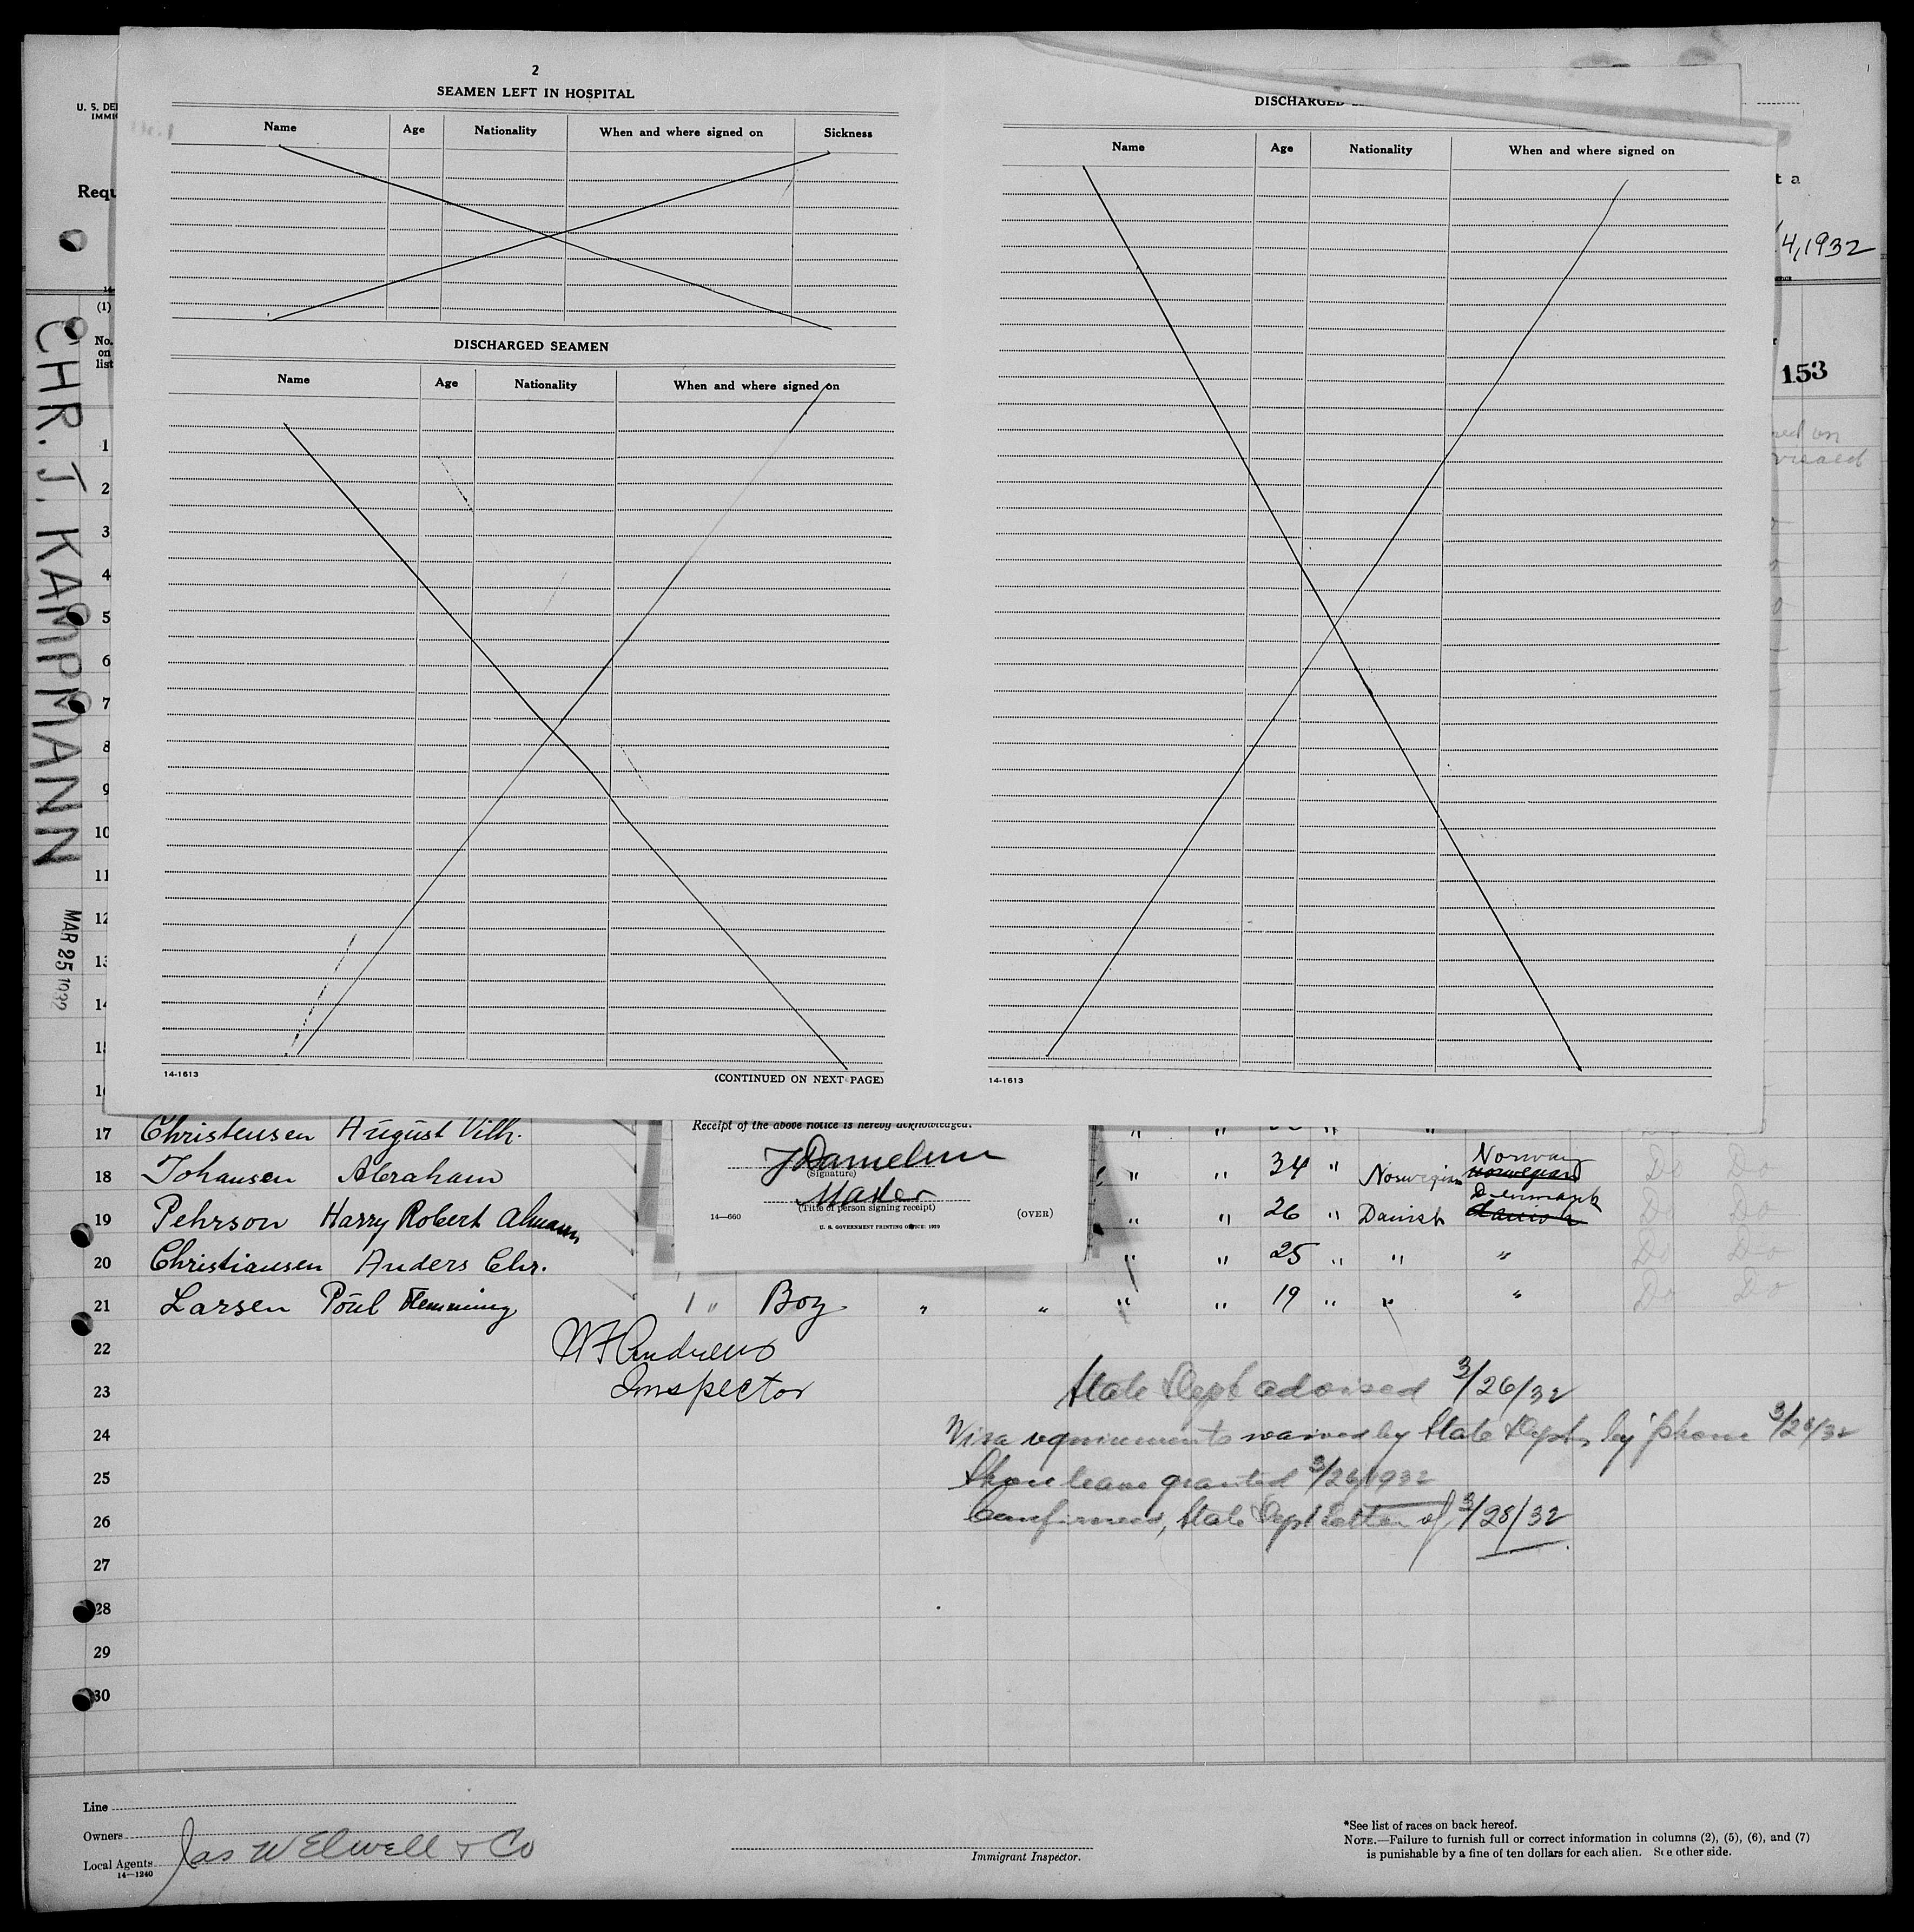 2
SEAMEN LEFT IN HOSPITAL
Name Age Nationality When and where signed on Sickness
DISCHARGED SEAMEN
Name Age Nationality When and where signed on
14-1613 (CONTINUED ON NEXT PAGE)
DISCHARGED
Name Age Nationality When and where signed on
14-1613
U. S. DE
IMMI
Requ
t a
4, 1932
153
(1)
No.
on
list
CHR. J. KAMPMANN
MAR 25 1932
1
2
3
4
5
6
7
8
9
10
11
12
13
14
17 Christensen August Vilh. " " " "
18 Johansen Abraham " " 34 " Norwegian Norwegian Norway Do Do
19 Pehrson Harry Robert " " 26 " Danish Danish Denmark Do Do
20 Christiansen Anders Chr. " " 25 " " " Do Do
21 Larsen Poul Flemming 1 " Boy " " " " 19 " " " Do Do
Receipt of the above notice is hereby acknowledged.
(Signature)
Master
(Title of person signing receipt)
14—660 (OVER)
U. S. GOVERNMENT PRINTING OFFICE: 1929
22 W F Andrews
23 Inspector
State Dept advised 3/26/32
24 Visa requirements waived by State Dept, by phone 3/26/32
25 Shore leave granted 3/26/1932
26 Confirmed, State Dept letter of 3/28/32
27
28
29
30
Line
Owners
Local Agents Jas W Elwell & Co
14—1240
Immigrant Inspector.
*See list of races on back hereof.
NOTE.—Failure to furnish full or correct information in columns (2), (5), (6), and (7)
is punishable by a fine of ten dollars for each alien. See other side.